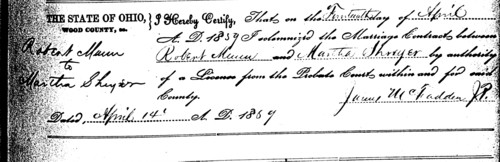 THE STATE OF OHIO, } I Hereby Certify, That on the Fourteenth day of April
WOOD COUNTY, ss.
A. D. 1859 I solemnized the Marriage Contract between
Robert Mann
to
Robert Mann and Martha Shroyer by authority
Martha Shroyer
of a License from the Probate Court within and for said
County.
James McFadden J.P.
Dated, April 14th A. D. 1859